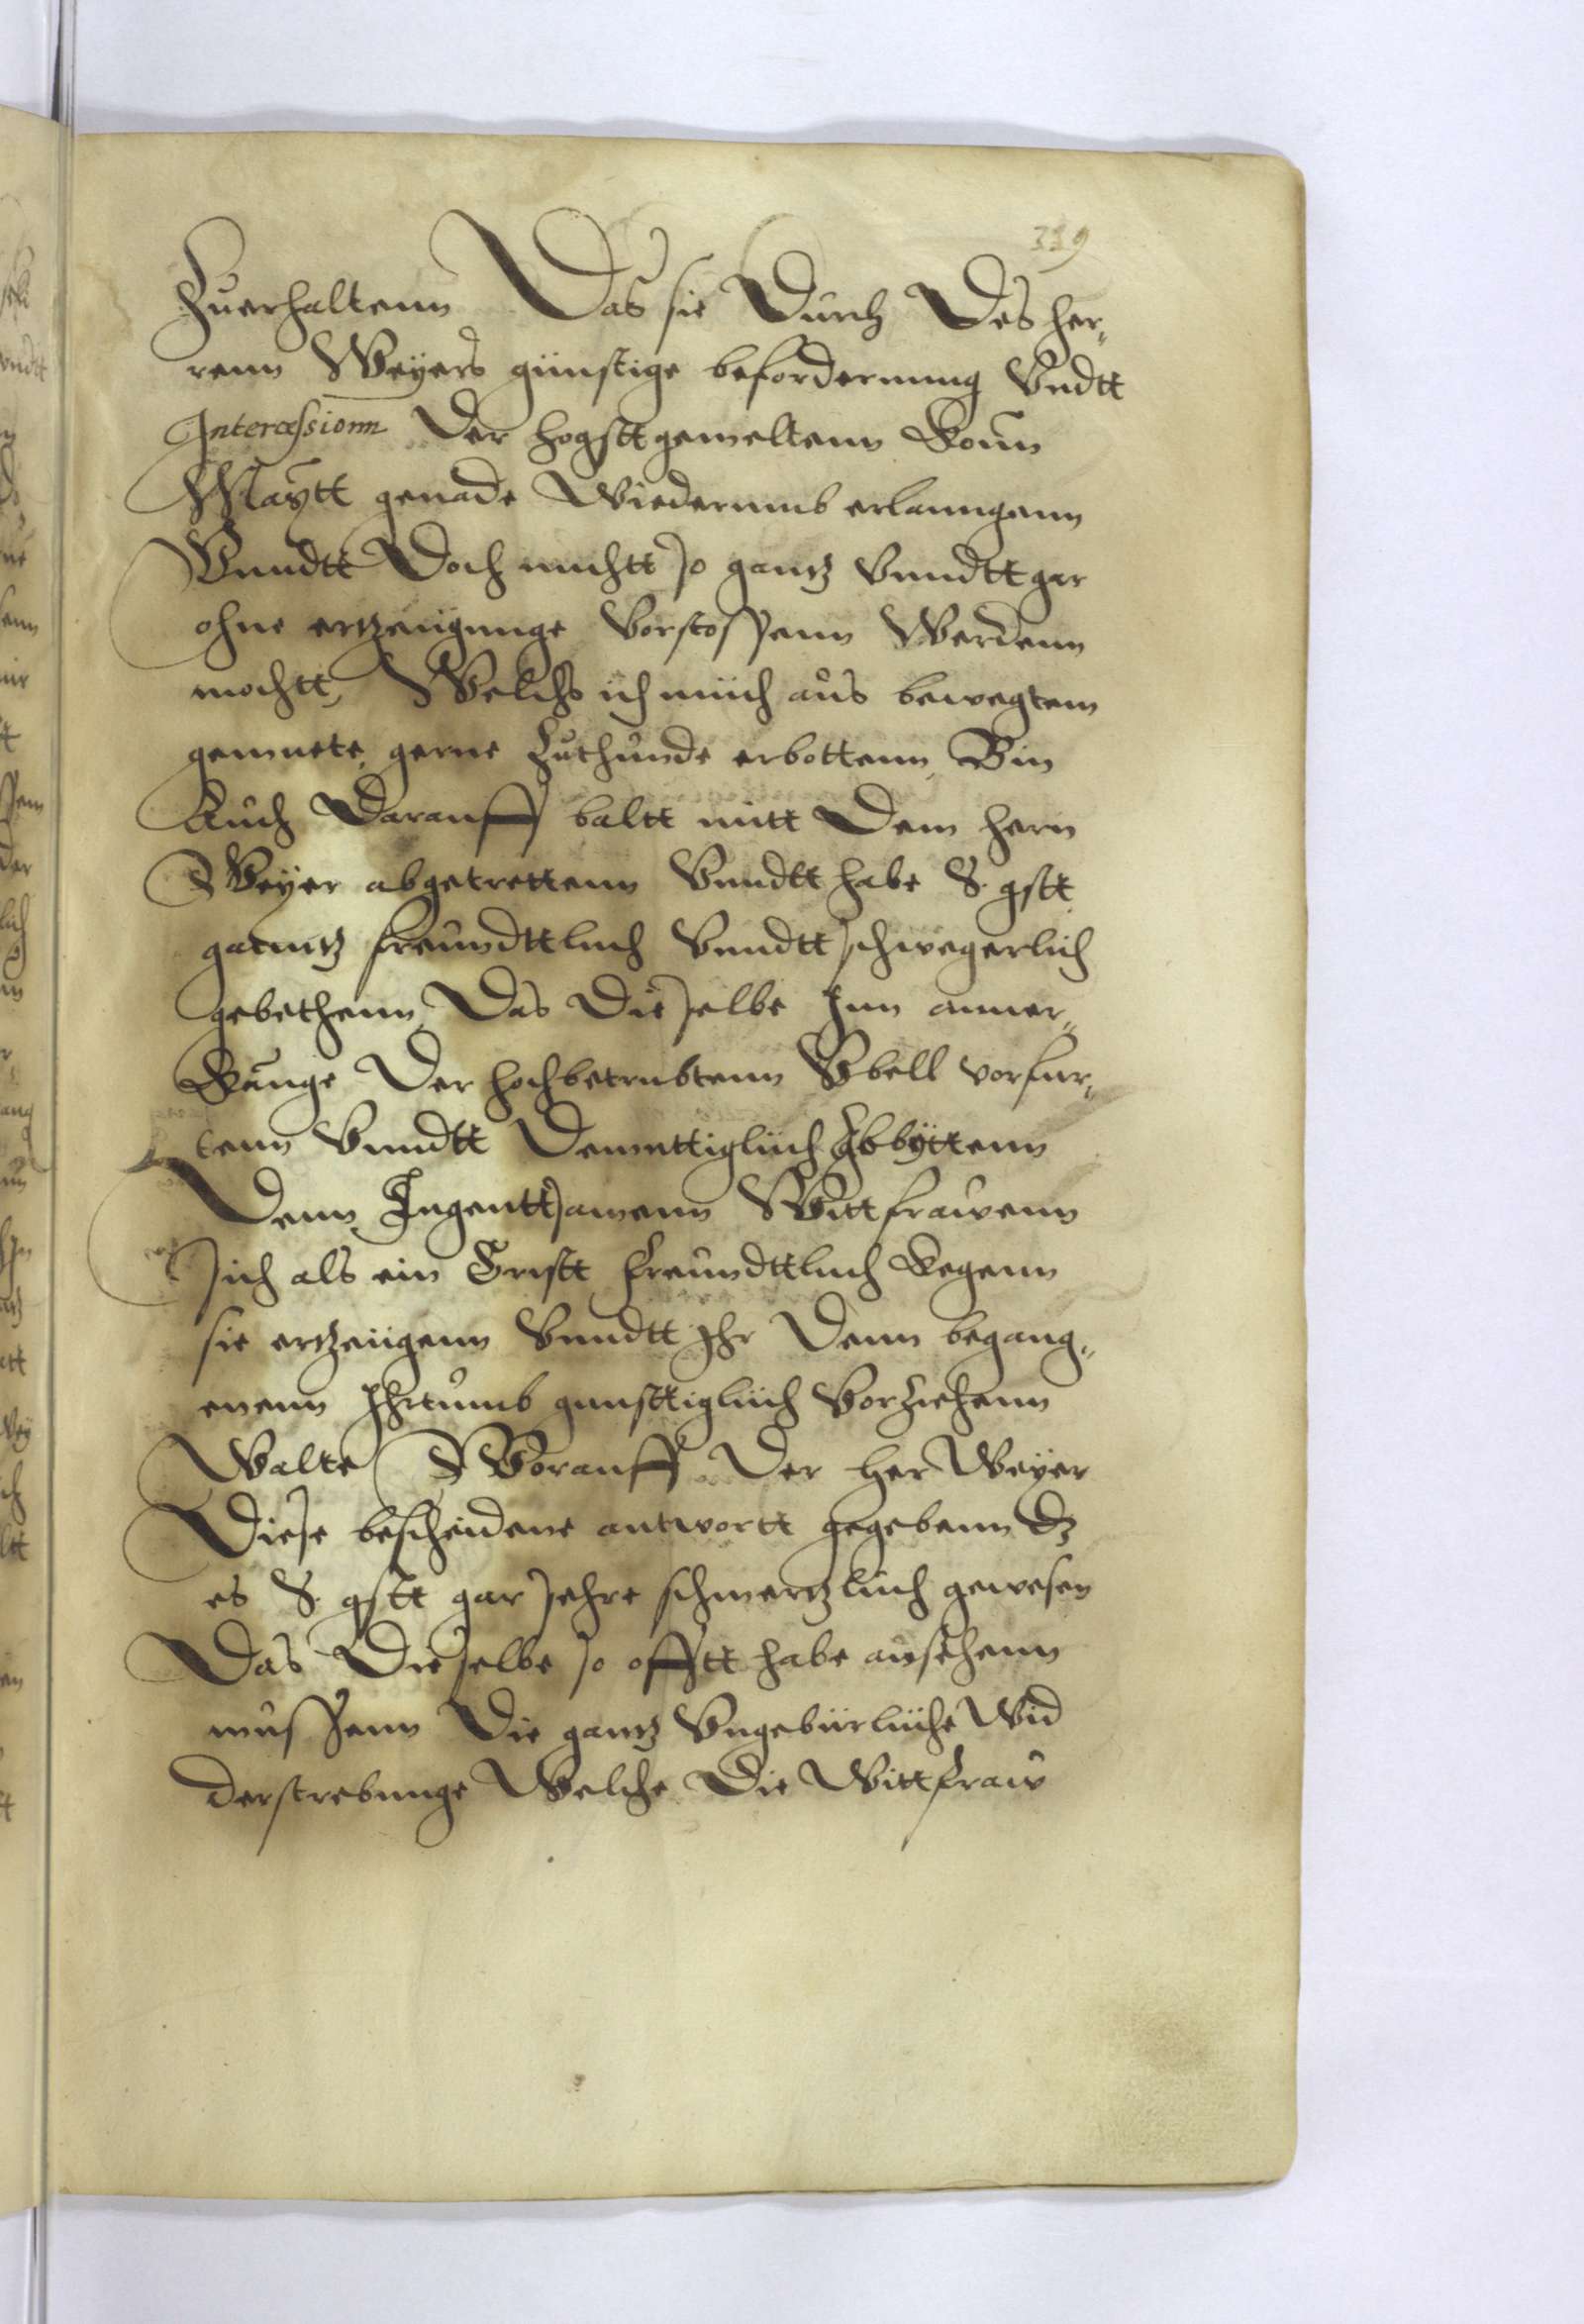 319
Zuerhaltenn Das sie Durch Des her„
renn Weÿers günstige befordernung Vndtt
Intercessionn Der hogstt gemeltenn Konn
Maÿtt genade Wiederumb erlanngenn
Vnndtt Doch nichtt so gantz Vnndtt gar
ohne ertzeigunge Vorstossenn Werdenn
mochtt, Welchs ich mich aus bewegtem
gemuete gerne Zuthunde erbottenn, Bin
Auch Darauff baltt mitt Dem hern
Weÿer abgetrettenn Vnndtt habe S. gstt
gantz freundttlich Vnndtt schwegerlich
gebethenn, Das Dieselbe Inn anmer„
kunge Der hochbetrubtenn Vbell vorfur„
tenn Vnndtt Demuttiglich Abbÿttenn
Denn Tugenttsamenn Wittfrawenn
sich als ein Christ freundttlich kegenn
sie ertzeigenn Vnndtt Ihr Denn begang„
enenn Ihrtumb gunsttiglich Vorziehenn
Wolte Worauff Der her Weÿer
Diese bescheidene antwortt gegebenn Dz
es S. gstt gar sehre schmertzlich gewesen
Das Dieselbe so offtt habe ansehenn
mussenn Die gantz Vngebürliche Wid
derstrebunge Welche Die Wittfraw